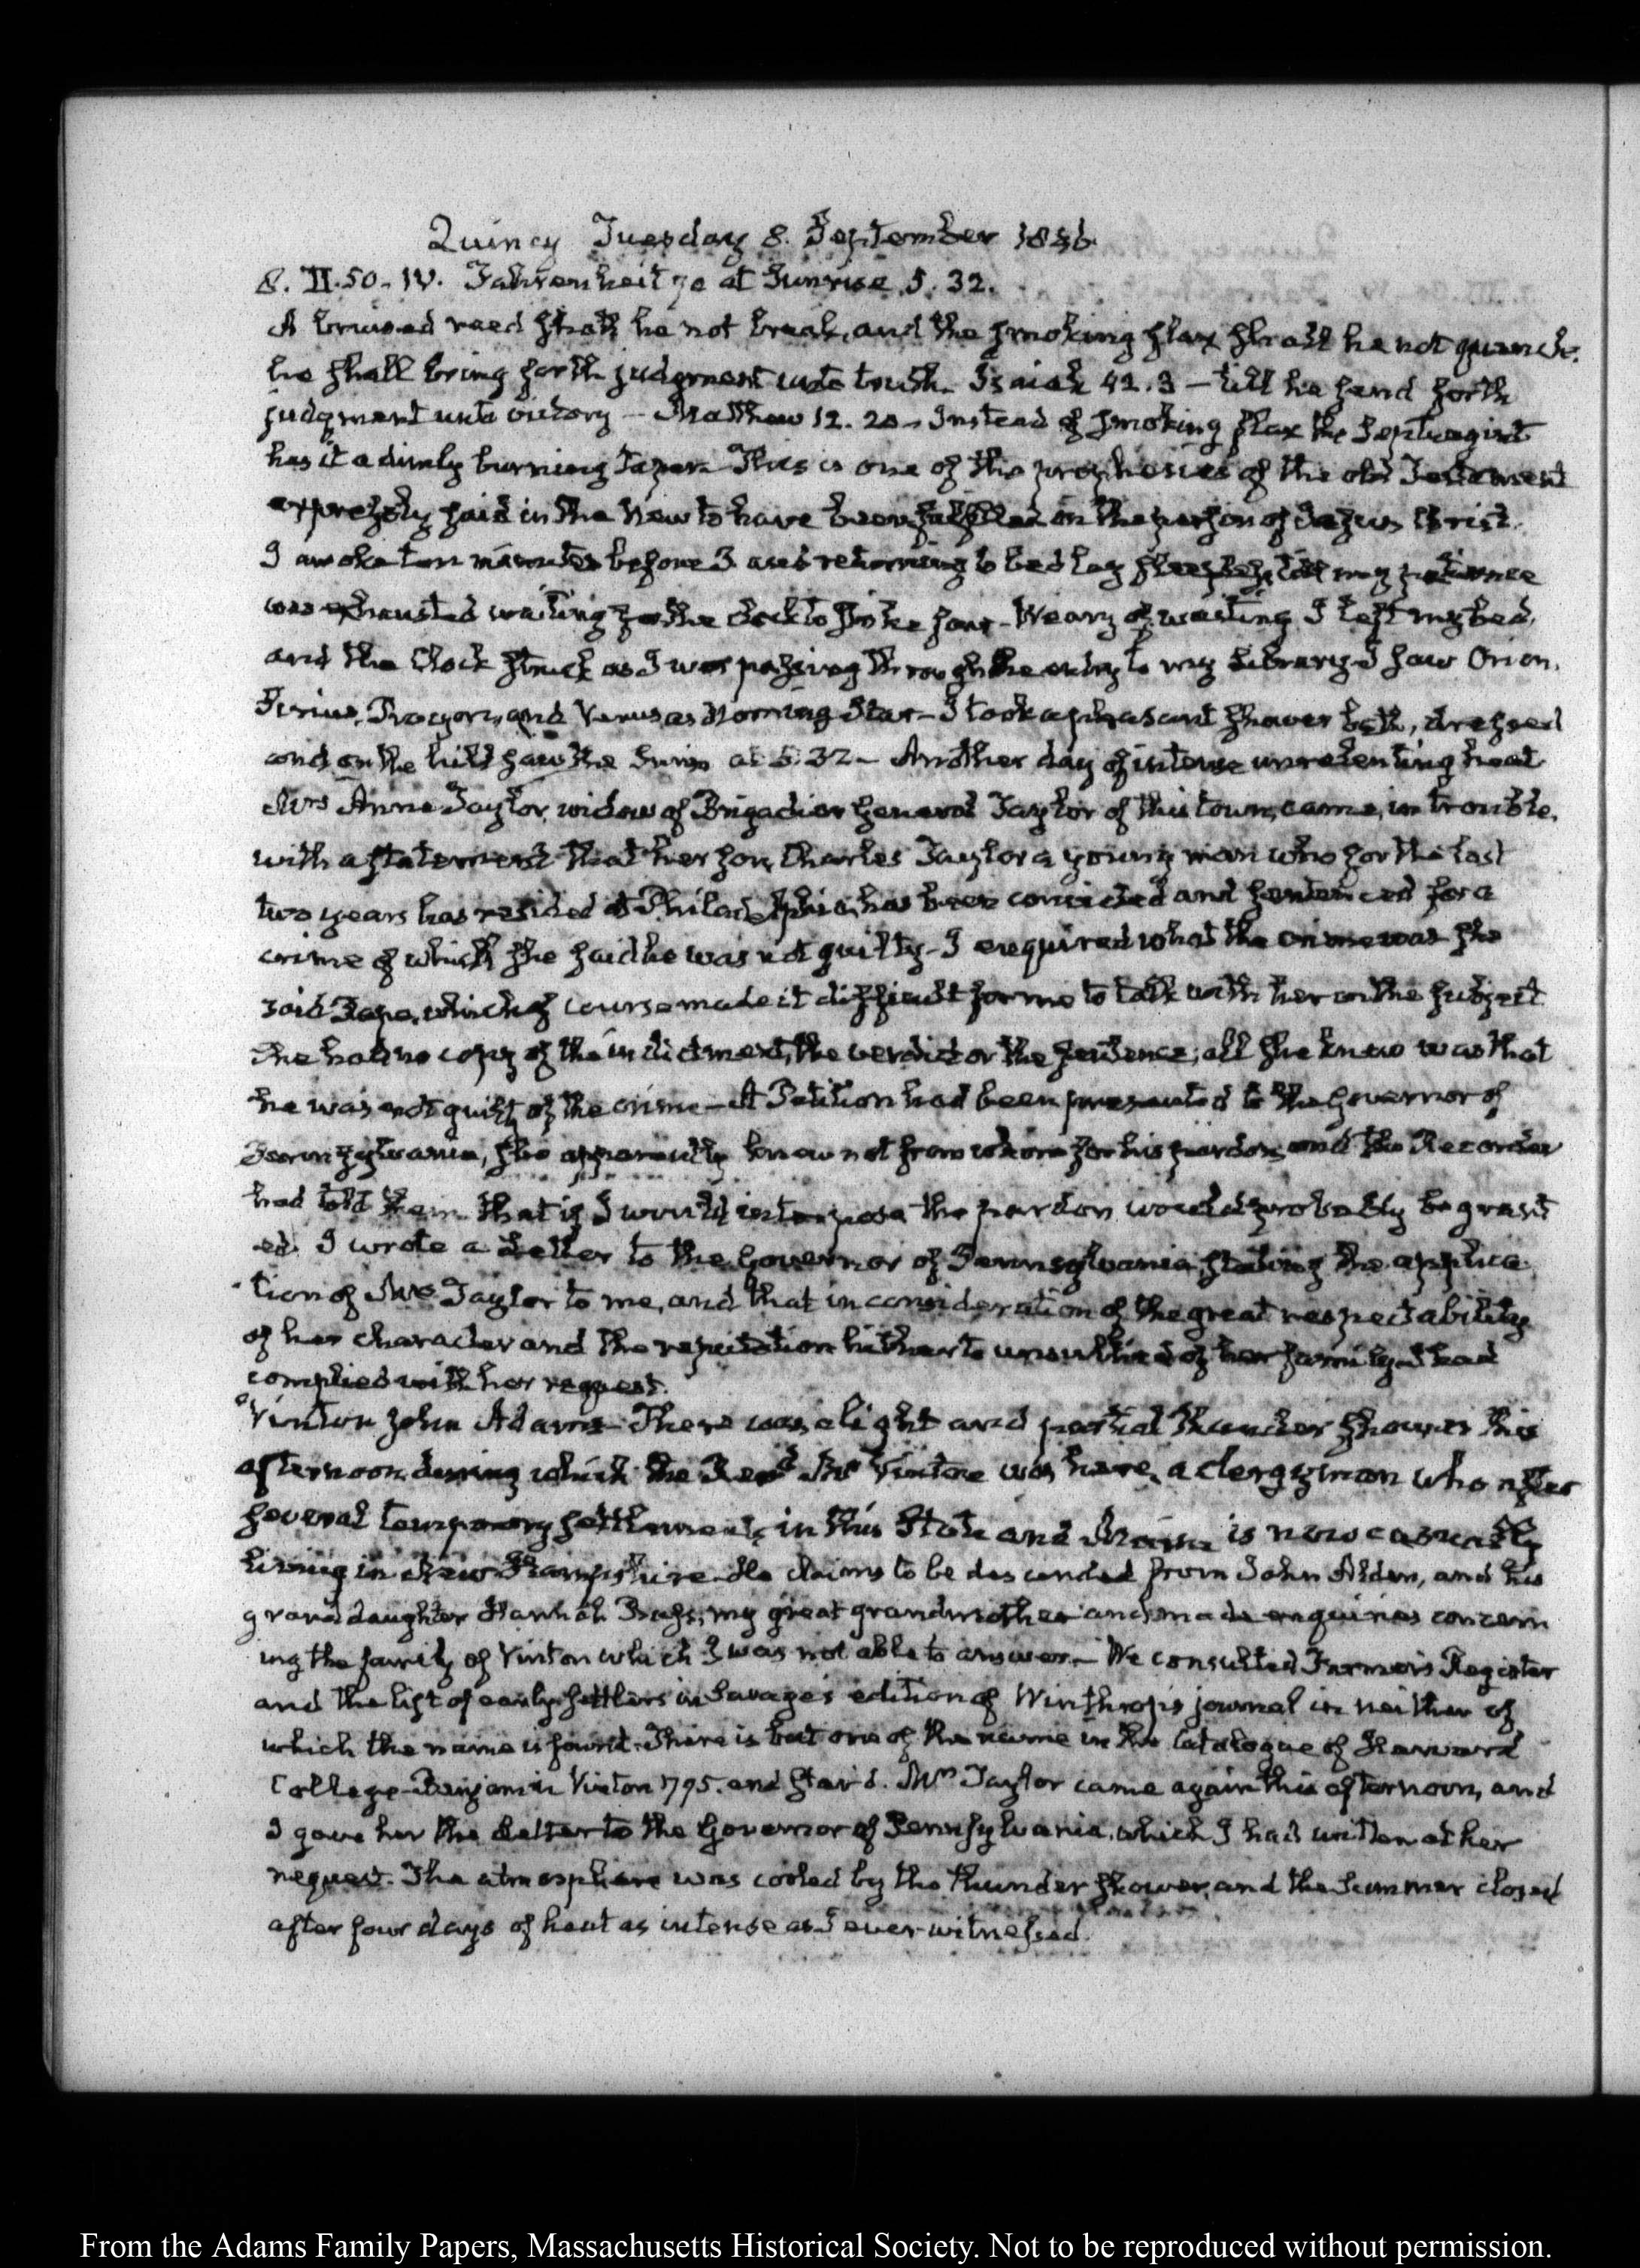 Quincy Tuesday 8. September 1846
8. II.50-IV. Fahrenheit 70 at Sunrise 5.32.
A bruised reed shall he not break, and the smoking flax shall he not quench.
he shall bring forth judgment unto truth. Isaiah 42.3 – till he send forth
judgment unto victory – Matthew 12.20 – Instead of smoking flax the Septuagint
has it a dimly burning taper – This is one of the prophesies of the old Testament
expressly said in the New to have been fulfilled in the person of Jesus Christ.
I awoke ten minutes before 3 and returning to bed lay sleepless, till my patience
was exhausted waiting for the clock to strike four – Weary of waiting I left my bed,
and the Clock struck as I was passing through the entry to my Library – I saw Orion,
Sirius, Procyon, and Venus as Morning Star – I took a pleasant shower bath, dressed
and on the hill saw the Sun rise at 5.32 – Another day of intense unrelenting heat
Mrs Anne Taylor, widow of Brigadier General Taylor of this town, came, in trouble,
with a statement that her son, Charles Taylor a young man who for the last
two years has resided at Philadelphia, has been convicted and sentenced for a
crime of which she said he was not guilty – I enquired what the crime was she
said Rape, which of course made it difficult for me to talk with her on the subject
She had no copy of the indictment, the verdict or the sentence; all she knew was that
he was not guilty of the crime – A Petition had been presented to the Governor of
Pennsylvania, she apparently knew not from whom for his pardon, and the Recorder
had told them that if I would interpose the pardon would probably be grant
ed. I wrote a Letter to the Governor of Pennsylvania stating the applica
tion of Mrs Taylor to me, and that in consideration of the great respectability
of her character and the reputation hitherto unsullied of her family I had
complied with her request.
Vinton John Adams – There was a light and partial thunder shower this
afternoon, during which the Revd Mr Vinton was here, a clergyman who after
several temporary settlements in this State and Maine is now casually
living in New Hampshire – He claims to be descended from John Alden, and his
grand daughter Hannah Bass, my great grandmother and made enquiries concern
ing the family of Vinton which I was not able to answer. – We consulted Farmer's Register
and the list of early settlers in Savage's edition of Winthrop's journal in neither of
which the name is found. There is but one of the name in the Catalogue of Harvard
College – Benjamin Vinton 1795. and star'd. Mrs Taylor came again this afternoon, and
I gave her the Letter to the Governor of Pennsylvania, which I had written at her
request. The atmosphere was cooled by the thunder shower, and the Summer closed
after four days of heat as intense as I ever witnessed.
From the Adams Family Papers, Massachusetts Historical Society. Not to be reproduced without permission.